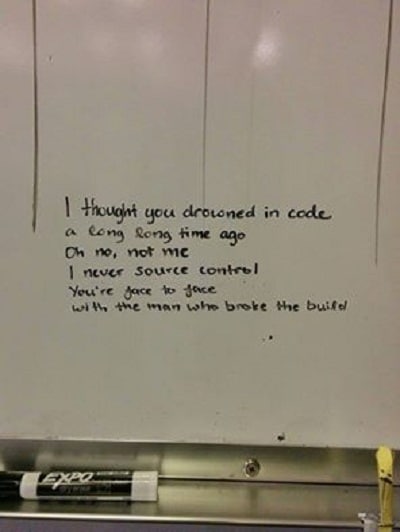 I thought you drowned in code
a long long time ago
Oh no, not me
I never source control
You're face to face
with the man who broke the build
EXPO